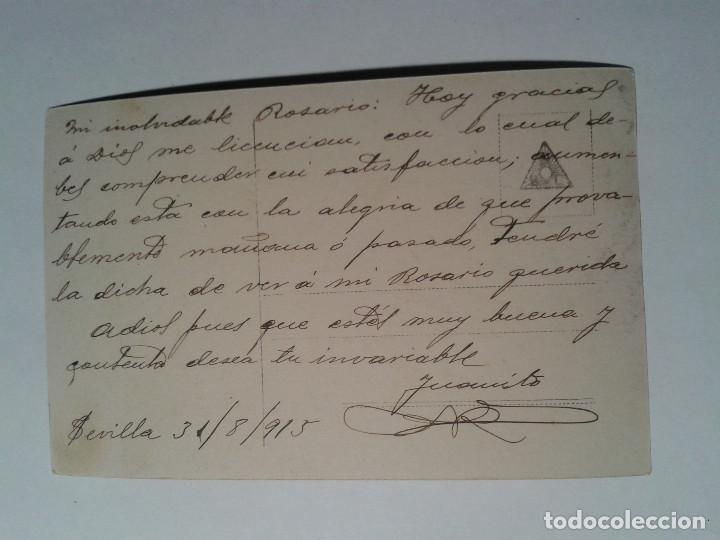 Mi inolvidable Rosario: Hoy gracias
á Dios me licencian, con lo cual de-
bes comprender mi satisfaccion; aumen-
tando esta con la alegria de que prova-
blemente mañana ó pasado, tendré
la dicha de ver á mi Rosario querida
Adios pues que estés muy buena y
contenta desea tu invariable
Juanito
Sevilla 31/8/915
todocoleccion.net